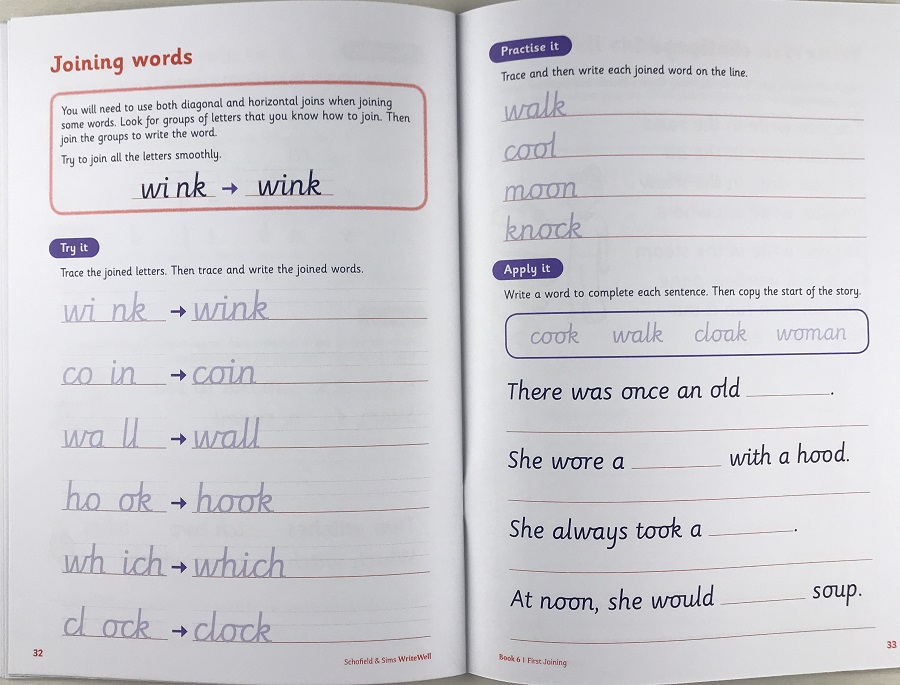 Joining words
You will need to use both diagonal and horizontal joins when joining
some words. Look for groups of letters that you know how to join. Then
join the groups to write the word.
Try to join all the letters smoothly.
wi nk → wink
Try it
Trace the joined letters. Then trace and write the joined words.
wi nk → wink
co in → coin
wa ll → wall
ho ok → hook
wh ich → which
cl ock → clock
32
Schofield & Sims WriteWell
Practise it
Trace and then write each joined word on the line.
walk
cool
moon
knock
Apply it
Write a word to complete each sentence. Then copy the start of the story.
cook walk cloak woman
There was once an old ________.
She wore a ________ with a hood.
She always took a ________.
At noon, she would ________ soup.
Book 6 | First Joining
33